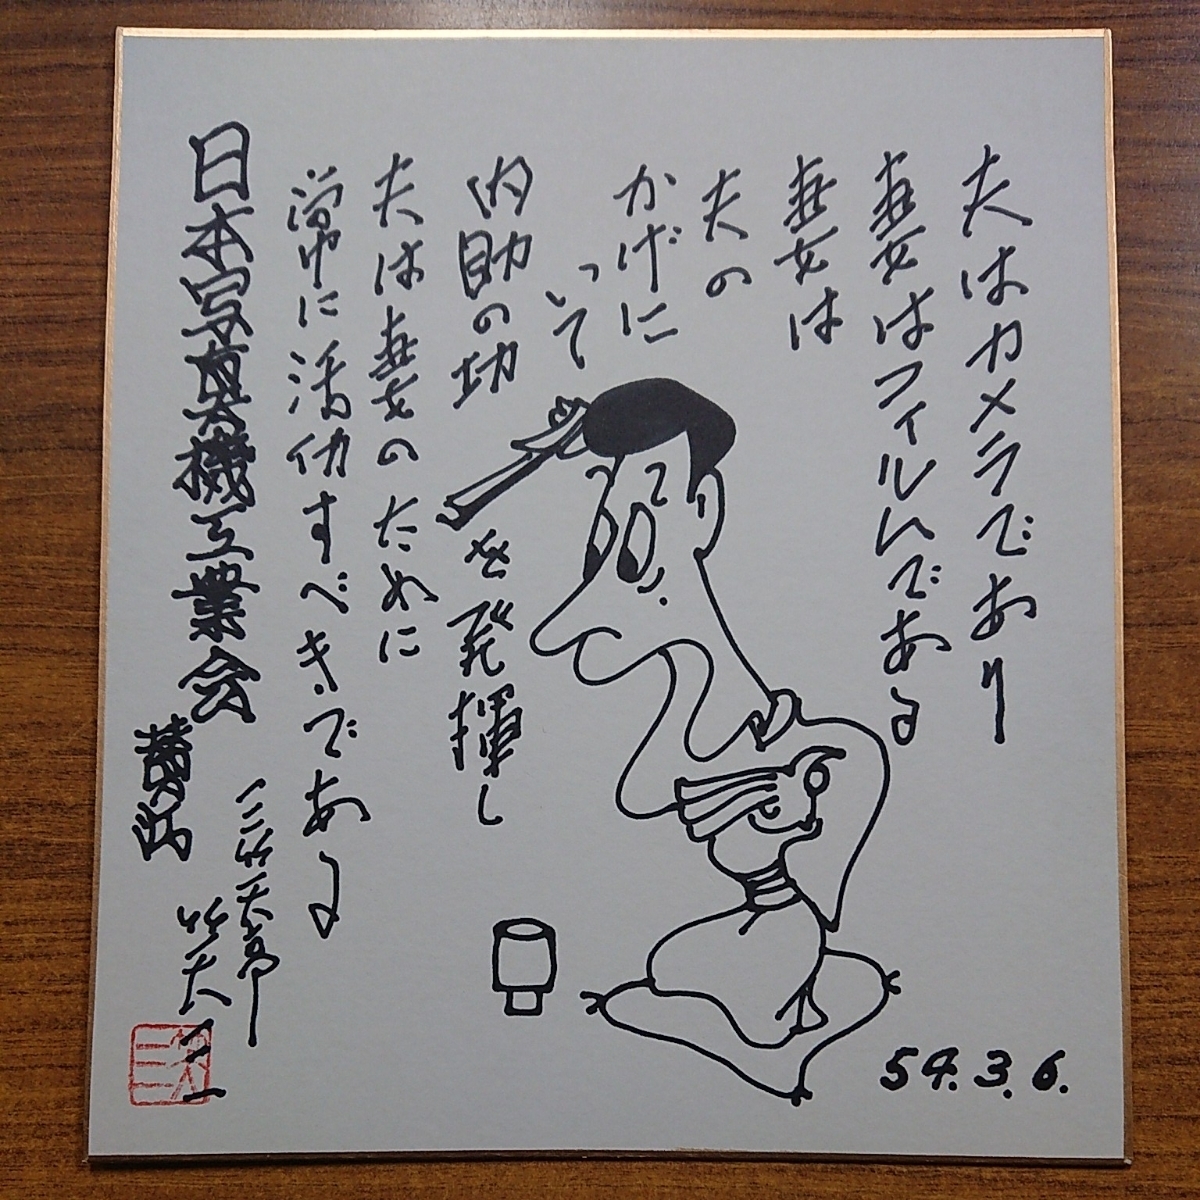 夫はカメラであり
妻はフィルムである
妻は
夫の
かげに
いて
内助の功
を発揮し
夫は妻のために
常に活仂すべきである
日本写真機工業会
三笑亭
笑三
54.3.6.